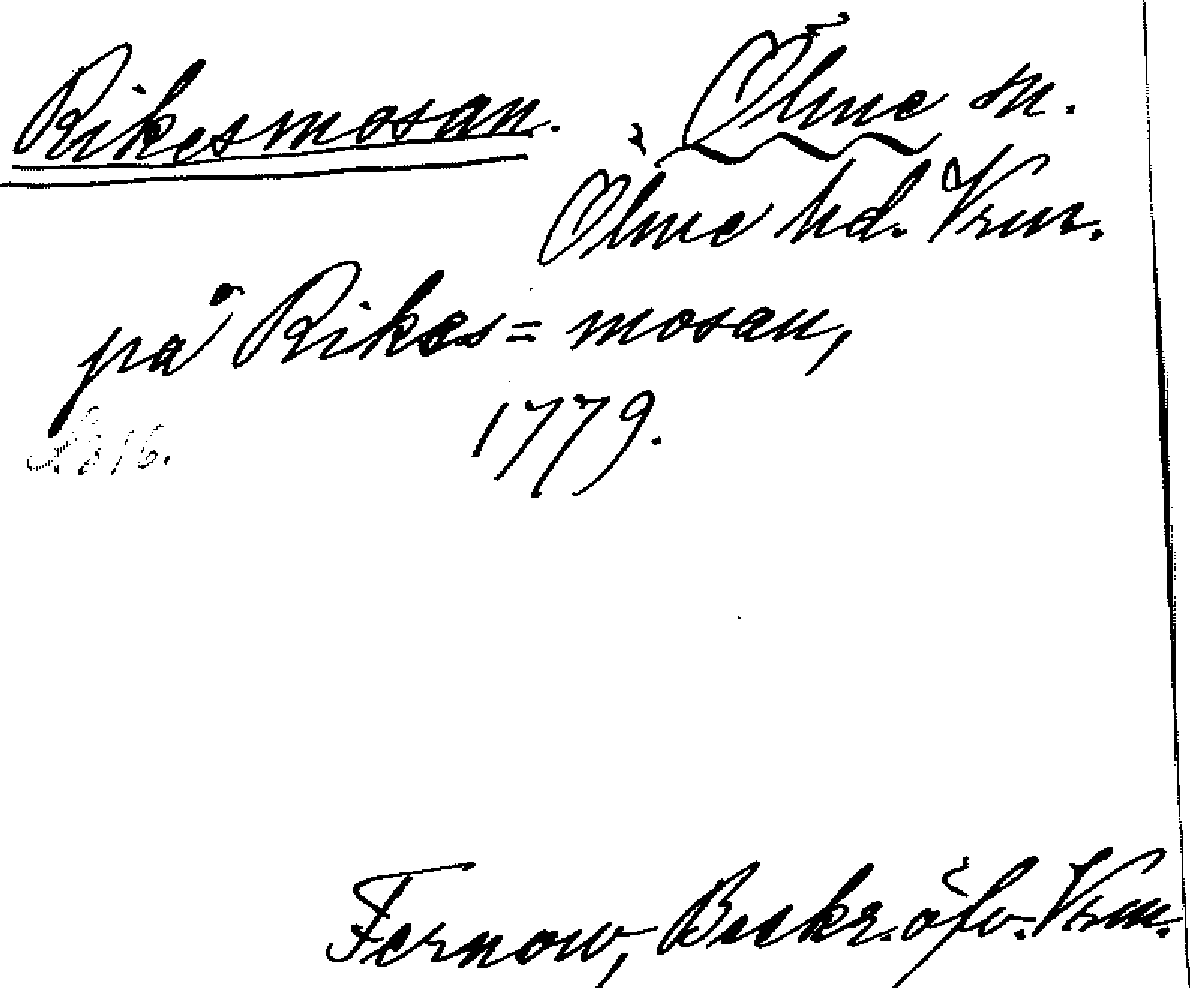 Rikesmosan. Ölme sn.
Ölme hd. Vrm.
på Rikes=mosan,
1779.
S. 316.
Fernow, Beskr. öfv. Vrm.